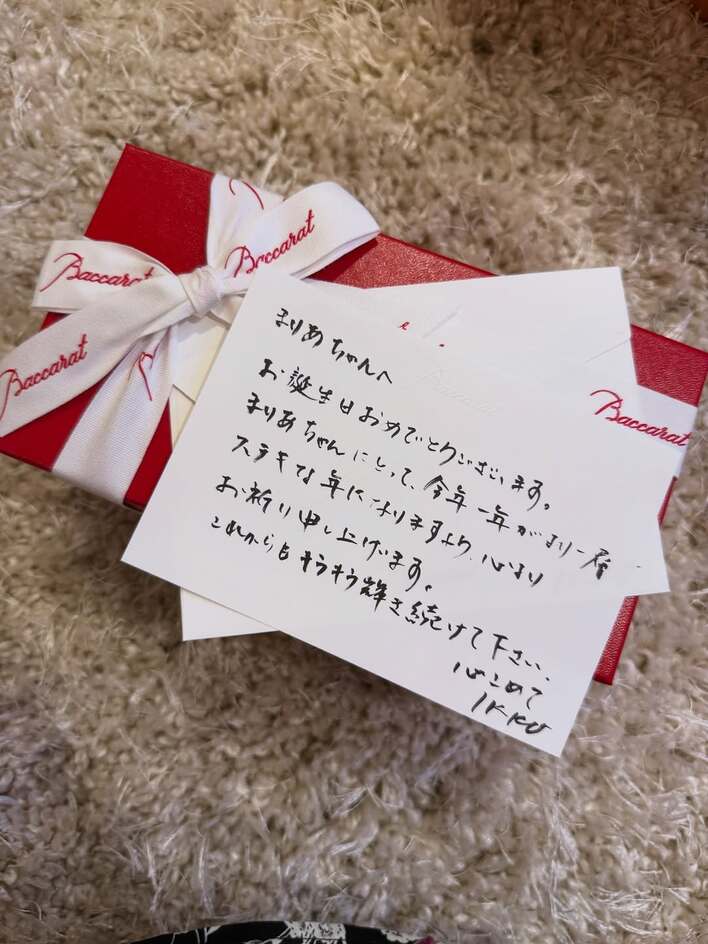 Baccarat
Baccarat
Baccarat
Baccarat
まりあちゃんへ
お誕生日おめでとうございます。
まりあちゃんにとって、今年一年がより一層
ステキな年になりますよう、心より
お祈り申し上げます。
これからもキラキラ輝き続けて下さい、
心こめて
IKKO